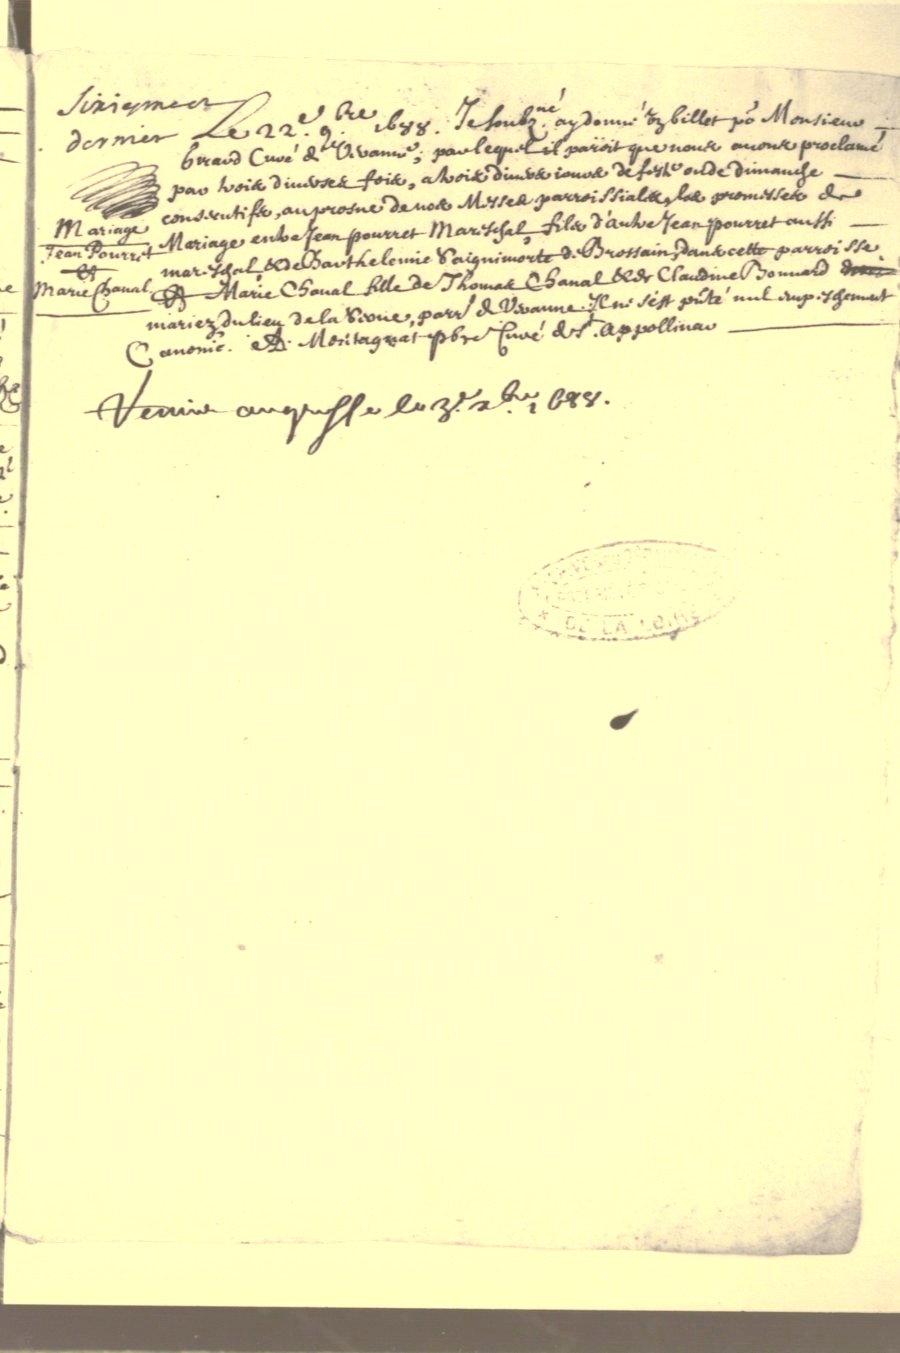 Sixiesment
dernier
Mariage
Jean Pourret
et
Marie Chanal
Le 22.e 9.bre 1688. Je soubz.né ay donné bz billet po Monsieur
beraud Curé de Vivanne; par lequel il paroit que nous avons proclamé
par trois diverses fois, a trois divers iours de feste ou de dimanche
consecutifs, au prosne de nos Messes parroissiales, les promesses de
Mariage entre Jean pourret Mareschal, fils d'autre Jean pourret aussi
mareschal, & de Barthelemie Saignimorte de Brossain, dans cette parroisse.
& Marie Chanal fille de Thomas Chanal & de Claudine Bonnard
mariez du lieu de la, parr. de Vivanne. Il ne s'est pnté nul empeschement
Canonic. & Montagnat pbre Curé de St. Appollinar
le 3.e x.bre 1688.
DE LA LOIRE